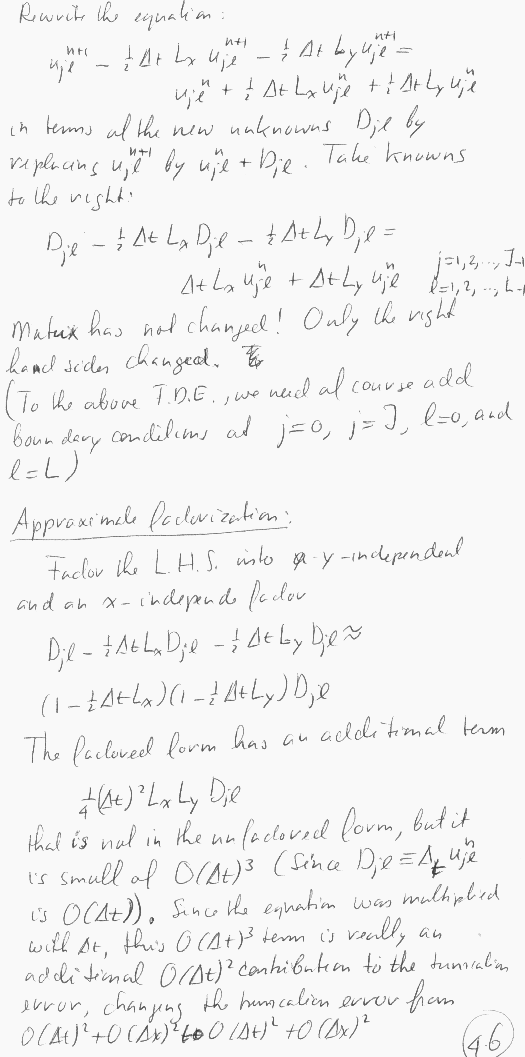 Rewrite the equation:
u_{jℓ}^{n+1} - ½ Δt L_x u_{jℓ}^{n+1} - ½ Δt L_y u_{jℓ}^{n+1} =
u_{jℓ}^n + ½ Δt L_x u_{jℓ}^n + ½ Δt L_y u_{jℓ}^n
in terms of the new unknowns D_{jℓ} by
replacing u_{jℓ}^{n+1} by u_{jℓ}^n + D_{jℓ}. Take knowns
to the right:
D_{jℓ} - ½ Δt L_x D_{jℓ} - ½ Δt L_y D_{jℓ} =
Δt L_x u_{jℓ}^n + Δt L_y u_{jℓ}^n j=1,2,..., J-1
ℓ=1,2,..., L-1
Matrix has not changed! Only the right
hand sides changed.
(To the above F.D.E., we need of course add
boundary conditions at j=0, j=J, ℓ=0, and
ℓ=L)
Approximate factorization:
Factor the L.H.S. into a y-independent
and an x-independe factor
D_{jℓ} - ½ Δt L_x D_{jℓ} - ½ Δt L_y D_{jℓ} ≈
(1 - ½ Δt L_x)(1 - ½ Δt L_y) D_{jℓ}
The factored form has an additional term
¼(Δt)² L_x L_y D_{jℓ}
that is not in the unfactored form, but it
is small of O(Δt)³ (Since D_{jℓ} ≡ Δ_t u_{jℓ}^n
is O(Δt)). Since the equation was multiplied
with Δt, this O(Δt)³ term is really an
additional O(Δt)² contribution to the truncation
error, changing the truncation error from
O(Δt)² + O(Δx)² to O(Δt)² + O(Δx)²
4.6